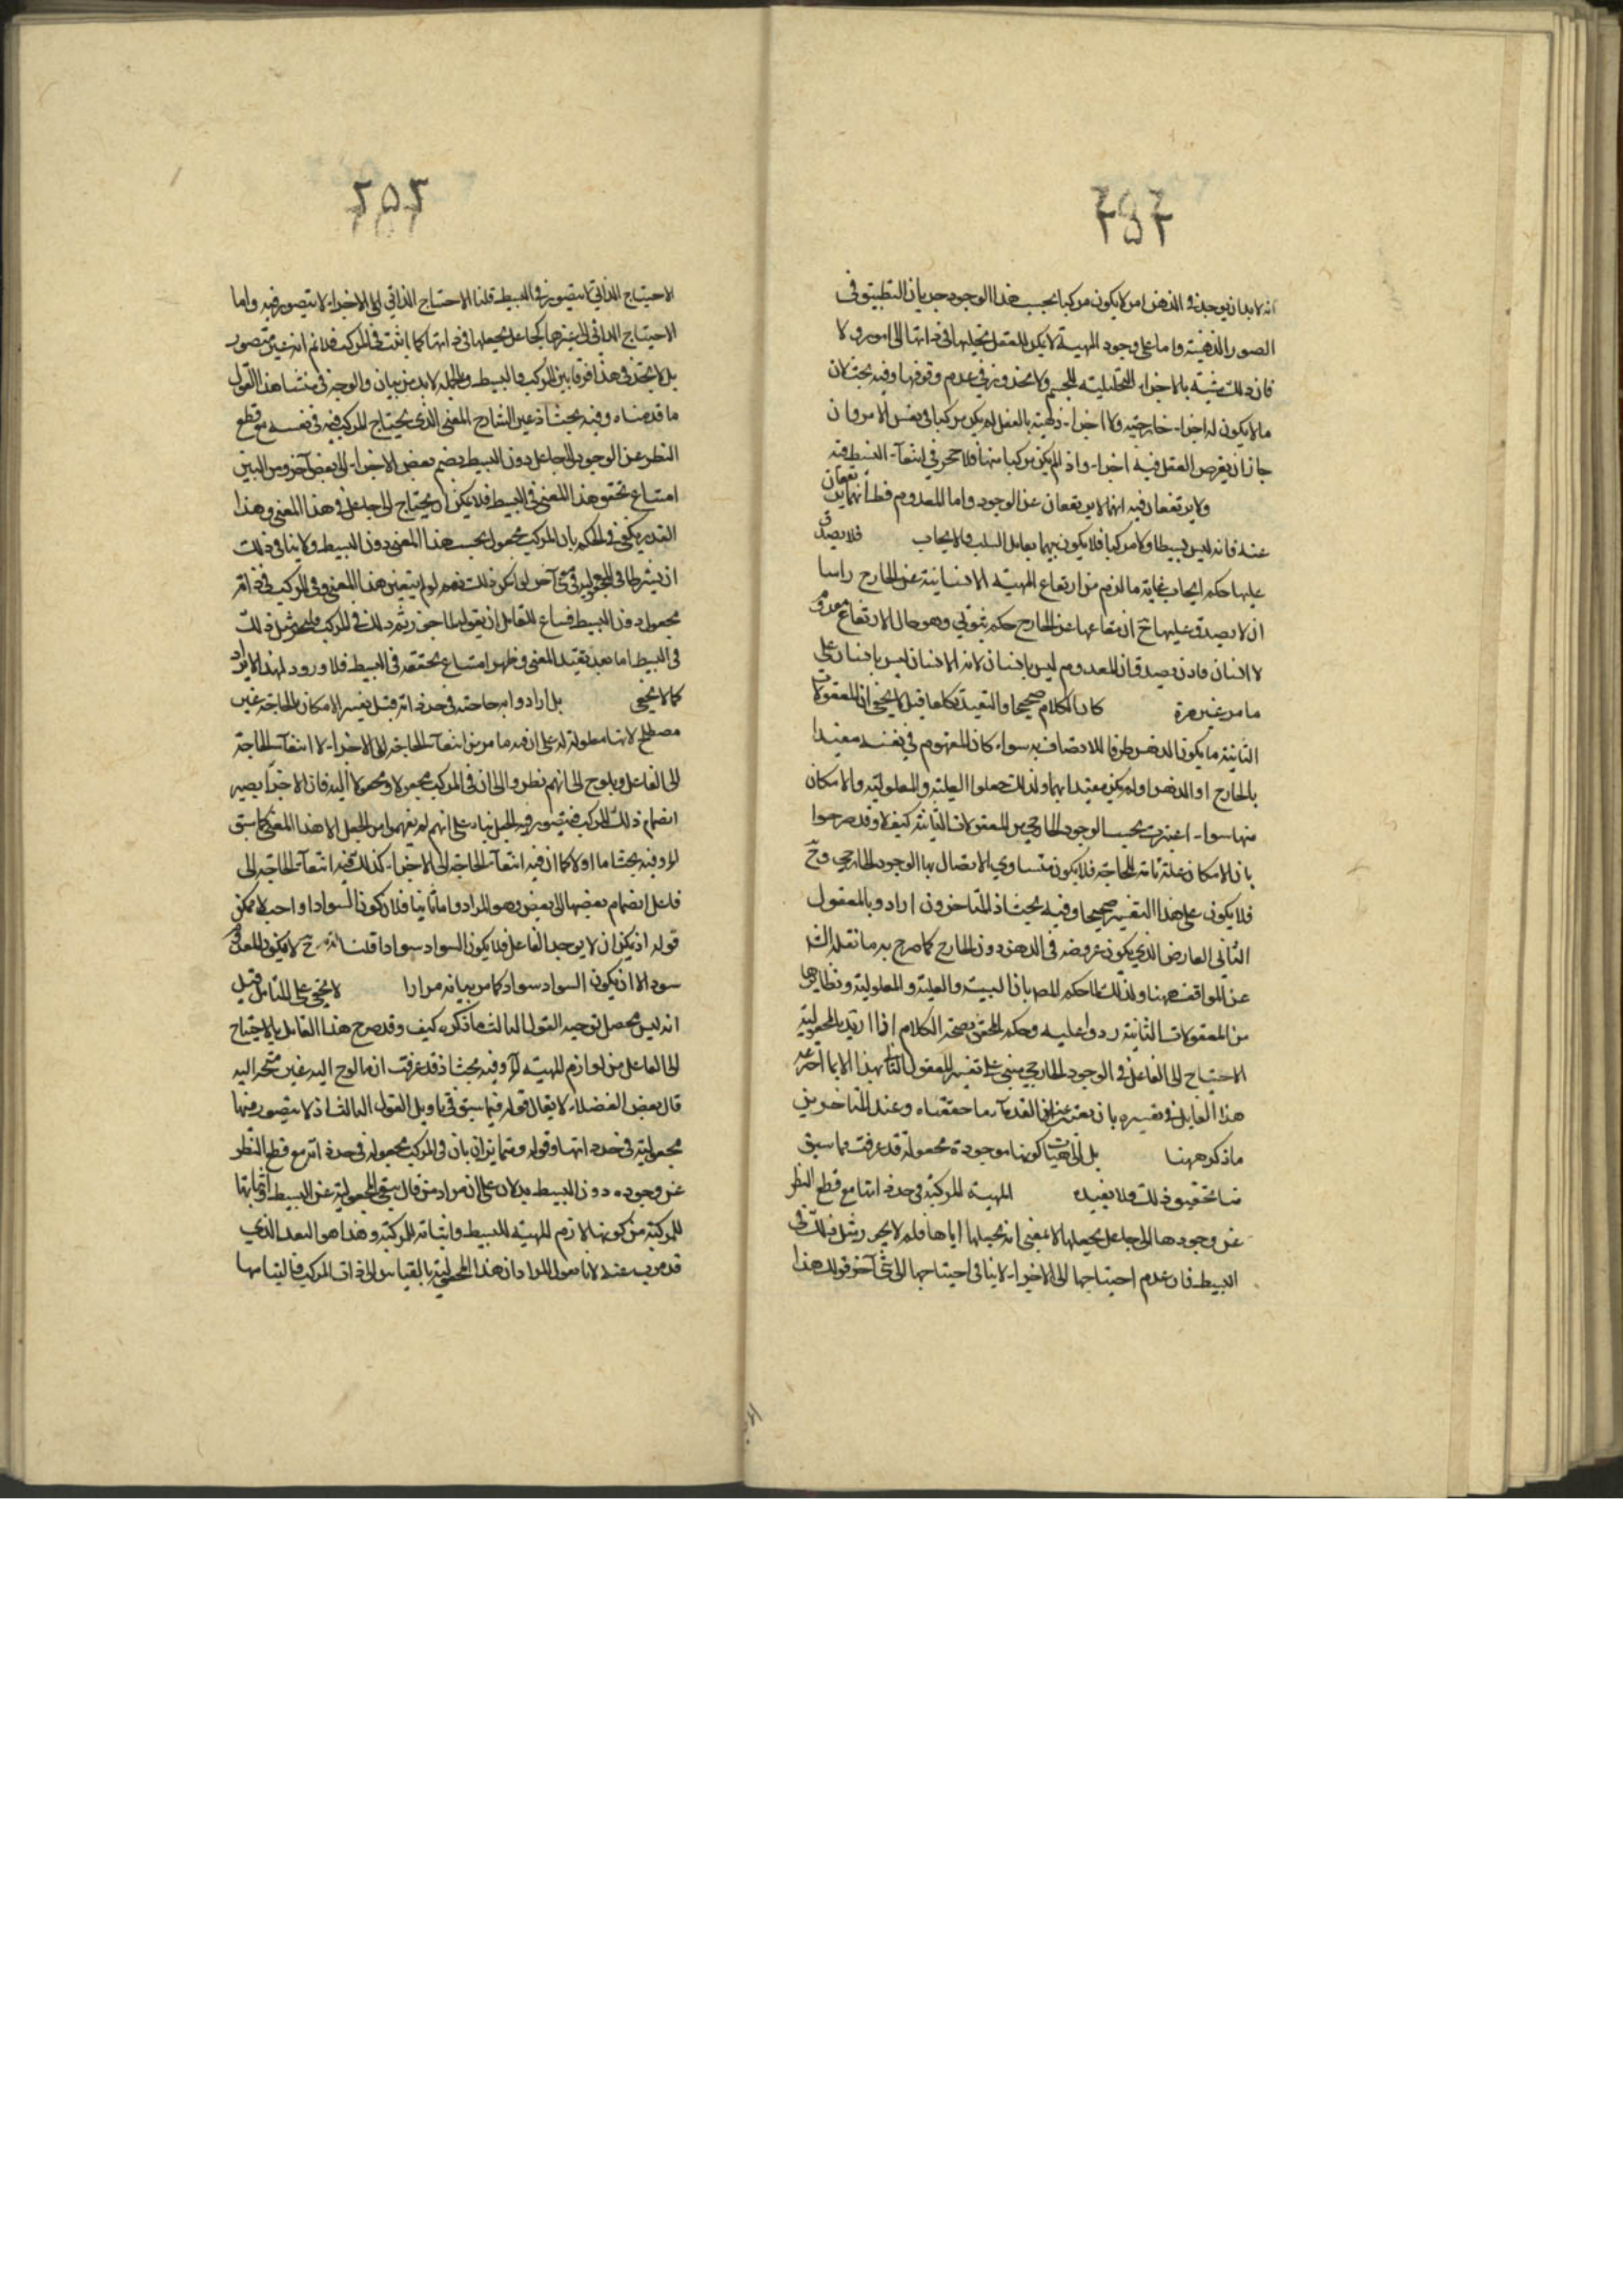 انه لا بد ان يوجد في الذهن امر لا يكون مركبا بحسب هذا الوجود جريان التطبيق في
الصور الذهنية واما على وجود المهية لا يمكن للعقل تحليلها في ذاتها الى امور ولا
فان ذلك شبيه بالاجزاء التحليلية للجسم ولا محذور في عدم وقوفها وفيه بحث لان
ما لا يكون له اجزاء خارجية ولا اجزاء ذهنية بالفعل لم يكن مركبا في نفس الامر وان
جاز ان يفرض العقل فيه اجزاء واذ لم يكن مركبا منها فلا حجر في انتفاء البسيط فيه
ولا يرتفعان فيه انهما لا يرتفعان عن الوجود واما المعدوم فظ انهما يرتفعان
عنه فانه ليس بسيطا ولا مركبا فلا يكون بينهما تقابل السلب والايجاب فلا يصدق
عليها حكم ايجاب غاية ما لزم من ارتفاع المهية الانسانية عن الخارج راسا
ان لا يصدق عليها ح ارتفاعها عن الخارج حكم ثبوتي وهو حال الارتفاع معدوم
لا انسان فاذن يصدق ان المعدوم ليس بانسان لانه الانسان ليس بانسان على
ما مر غير مرة كان الكلام صحيحا والتقييد تكلفا قيل لا يخفى ان المعقولات
الثانية ما يكون الذهن ظرفا للاتصاف به سواء كان المفهوم في نفسه مقيدا
بالخارج او الذهن او لم يكن مقيدا بهما ولذلك جعلوا العلية والمعلولية والامكان
منها سواء اعتبرت بحسب الوجود الخارجي من المعقولات الثانية كيف لا وقد صرحوا
بان الامكان علة تامة للحاجة فلا يكون متساوي الاتصال بها الوجود الخارجي وح
فلا يكون على هذا التفسير صحيحا وفيه بحث اذ المتاخرون ارادوا بالمعقول
الثاني العارض الذي يكون عروضه في الذهن دون الخارج كما صرح به ما نقله الش
عن المواقف ههنا ولذلك لما حكم المص بان السببية والعلية والمعلولية ونظايرها
من المعقولات الثانية ردوا عليه وحكم المحقق بصحة الكلام اذا اريد بالمجعولية
الاحتياج الى الفاعل في الوجود الخارجي مبني على تفسير المعقول الثاني بهذا لا بما اخترعه
هذا القايل في تفسيره بان يعتبر عن القدماء ما حققناه وعند المتاخرين
ماذكر ههنا بل الى حيثيتها كونها موجودة مجعولة قد عرفت بما سبق
منا تحقيق ذلك فلا نعيده المهية المركبة في حد ذاتها مع قطع النظر
عن وجودها الى جاعل يجعلها لا بمعنى انه يجعلها اياها فلم لا يجوز مثل ذلك في
البسيط فان عدم احتياجها الى الاجزاء لا ينافي احتياجها الى شئ آخر قوله هذا
٢٥٢
الاحتياج الذاتي لا يتصور في البسيط قلنا الاحتياج الذاتي الى الاجزاء لا يتصور فيه واما
الاحتياج الذاتي الى غيرها كجاعل يجعلها في ذاتها كما اثبت في المركب فلا نم انه غير متصور
بل لا نجد في هذا فرقا بين المركب والبسيط وبالجملة لا بد من بيان والوجه في منشا هذا القول
ما قدمناه وفيه بحث اذ عين الشارح المعنى الذي يحتاج المركب فيه في نفسه مع قطع
النظر عن الوجود الى الجاعل دون البسيط بضم بعض الاجزاء الى بعض آخر ومن البين
امتناع تحقق هذا المعنى في البسيط فلا يمكن ان يحتاج الى جاعل في هذا المعنى وهذا
القدر يكفي في الحكم بان المركب مجعول بحسب هذا المعنى دون البسيط ولا ينافي ذلك
ان يشترطا في المجعولية في شئ آخر لو امكن ذلك نعم لو لم يتعين هذا المعنى وفي المركب في ذاته
مجعول دون البسيط فساغ للقايل ان يقول لما جوزتم ذلك في المركب فليجز مثل ذلك
في البسيط اما بعد تقييد المعنى وظهر امتناع تحققه في البسيط فلا ورود لهذا الايراد
كما لا يخفى بل ارادوا به حاجته في حد ذاته قيل يفسر الامكان بالحاجة غير
مصطلح لانها معلولة له على ان فيه ما مر من انتفاء الحاجة الى الاجزاء لا انتفاء الحاجة
الى الفاعل ويلوح الى انهم نظروا الى ان في المركب مجعولا ومجعولا اليه فان الاجزاء يصير
انضمام ذلك المركب فيتصور فيه الجعل بناء على انهم لم يفهموا من الجعل الا هذا المعنى كما سبق
لرد فيه بحث اما اولا كما ان فيه انتفاء الحاجة الى الاجزاء كذلك فيه انتفاء الحاجة الى
فاعل انضمام بعضها الى بعض وهو المراد واما ثانيا فلان كون السواد واحب لا ممكن
قوله اذ يمكن ان لا يوجد الفاعل فلا يكون السواد سوادا قلنا ح لا يكون المعدوم
سودا لا ان يكون السواد سواد كما مر بيانه مرارا لا يخفى على المتامل قيل
انه ليس محصل توجيه القول الثالث ما ذكره كيف وقد صرح هذا القايل بالاحتياج
الى الفاعل من لوازم المهية له وفيه بحث اذ قد عرفت ان ما لوح اليه غير متجه اليه
قال بعض الفضلاء لا يقال قوله فيما سبق في تاويل القول الثالث اذ لا يتصور فيها
مجعولية في حد ذاتها وقوله وتمايزان بان في المركب مجعولة في حد ذاته مع قطع النظر
عن وجوده دون البسيط يدلان على ان مراد من قال بنفي المجعولية عن البسيط واثباتها
للمركبة من كونها لازم المهية للبسيط واثباته للمركبة وهذا هو البعد الذي
قد هرب عنه لانا نقول المراد ان هذا المجعولية بالقياس الى ذات المركب والتيامها